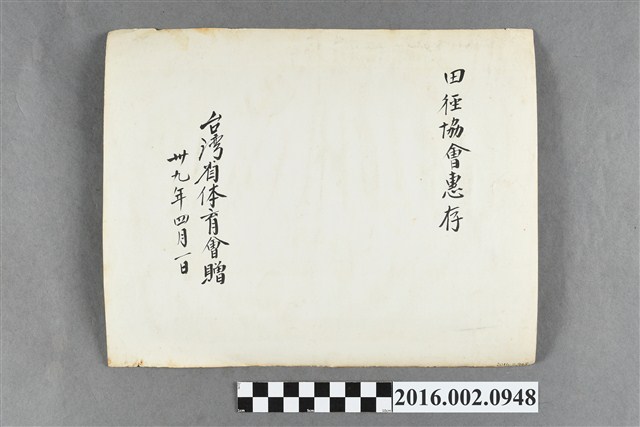 田徑協會惠存
台湾省体育會贈
卅九年四月一日
2016.002.0948